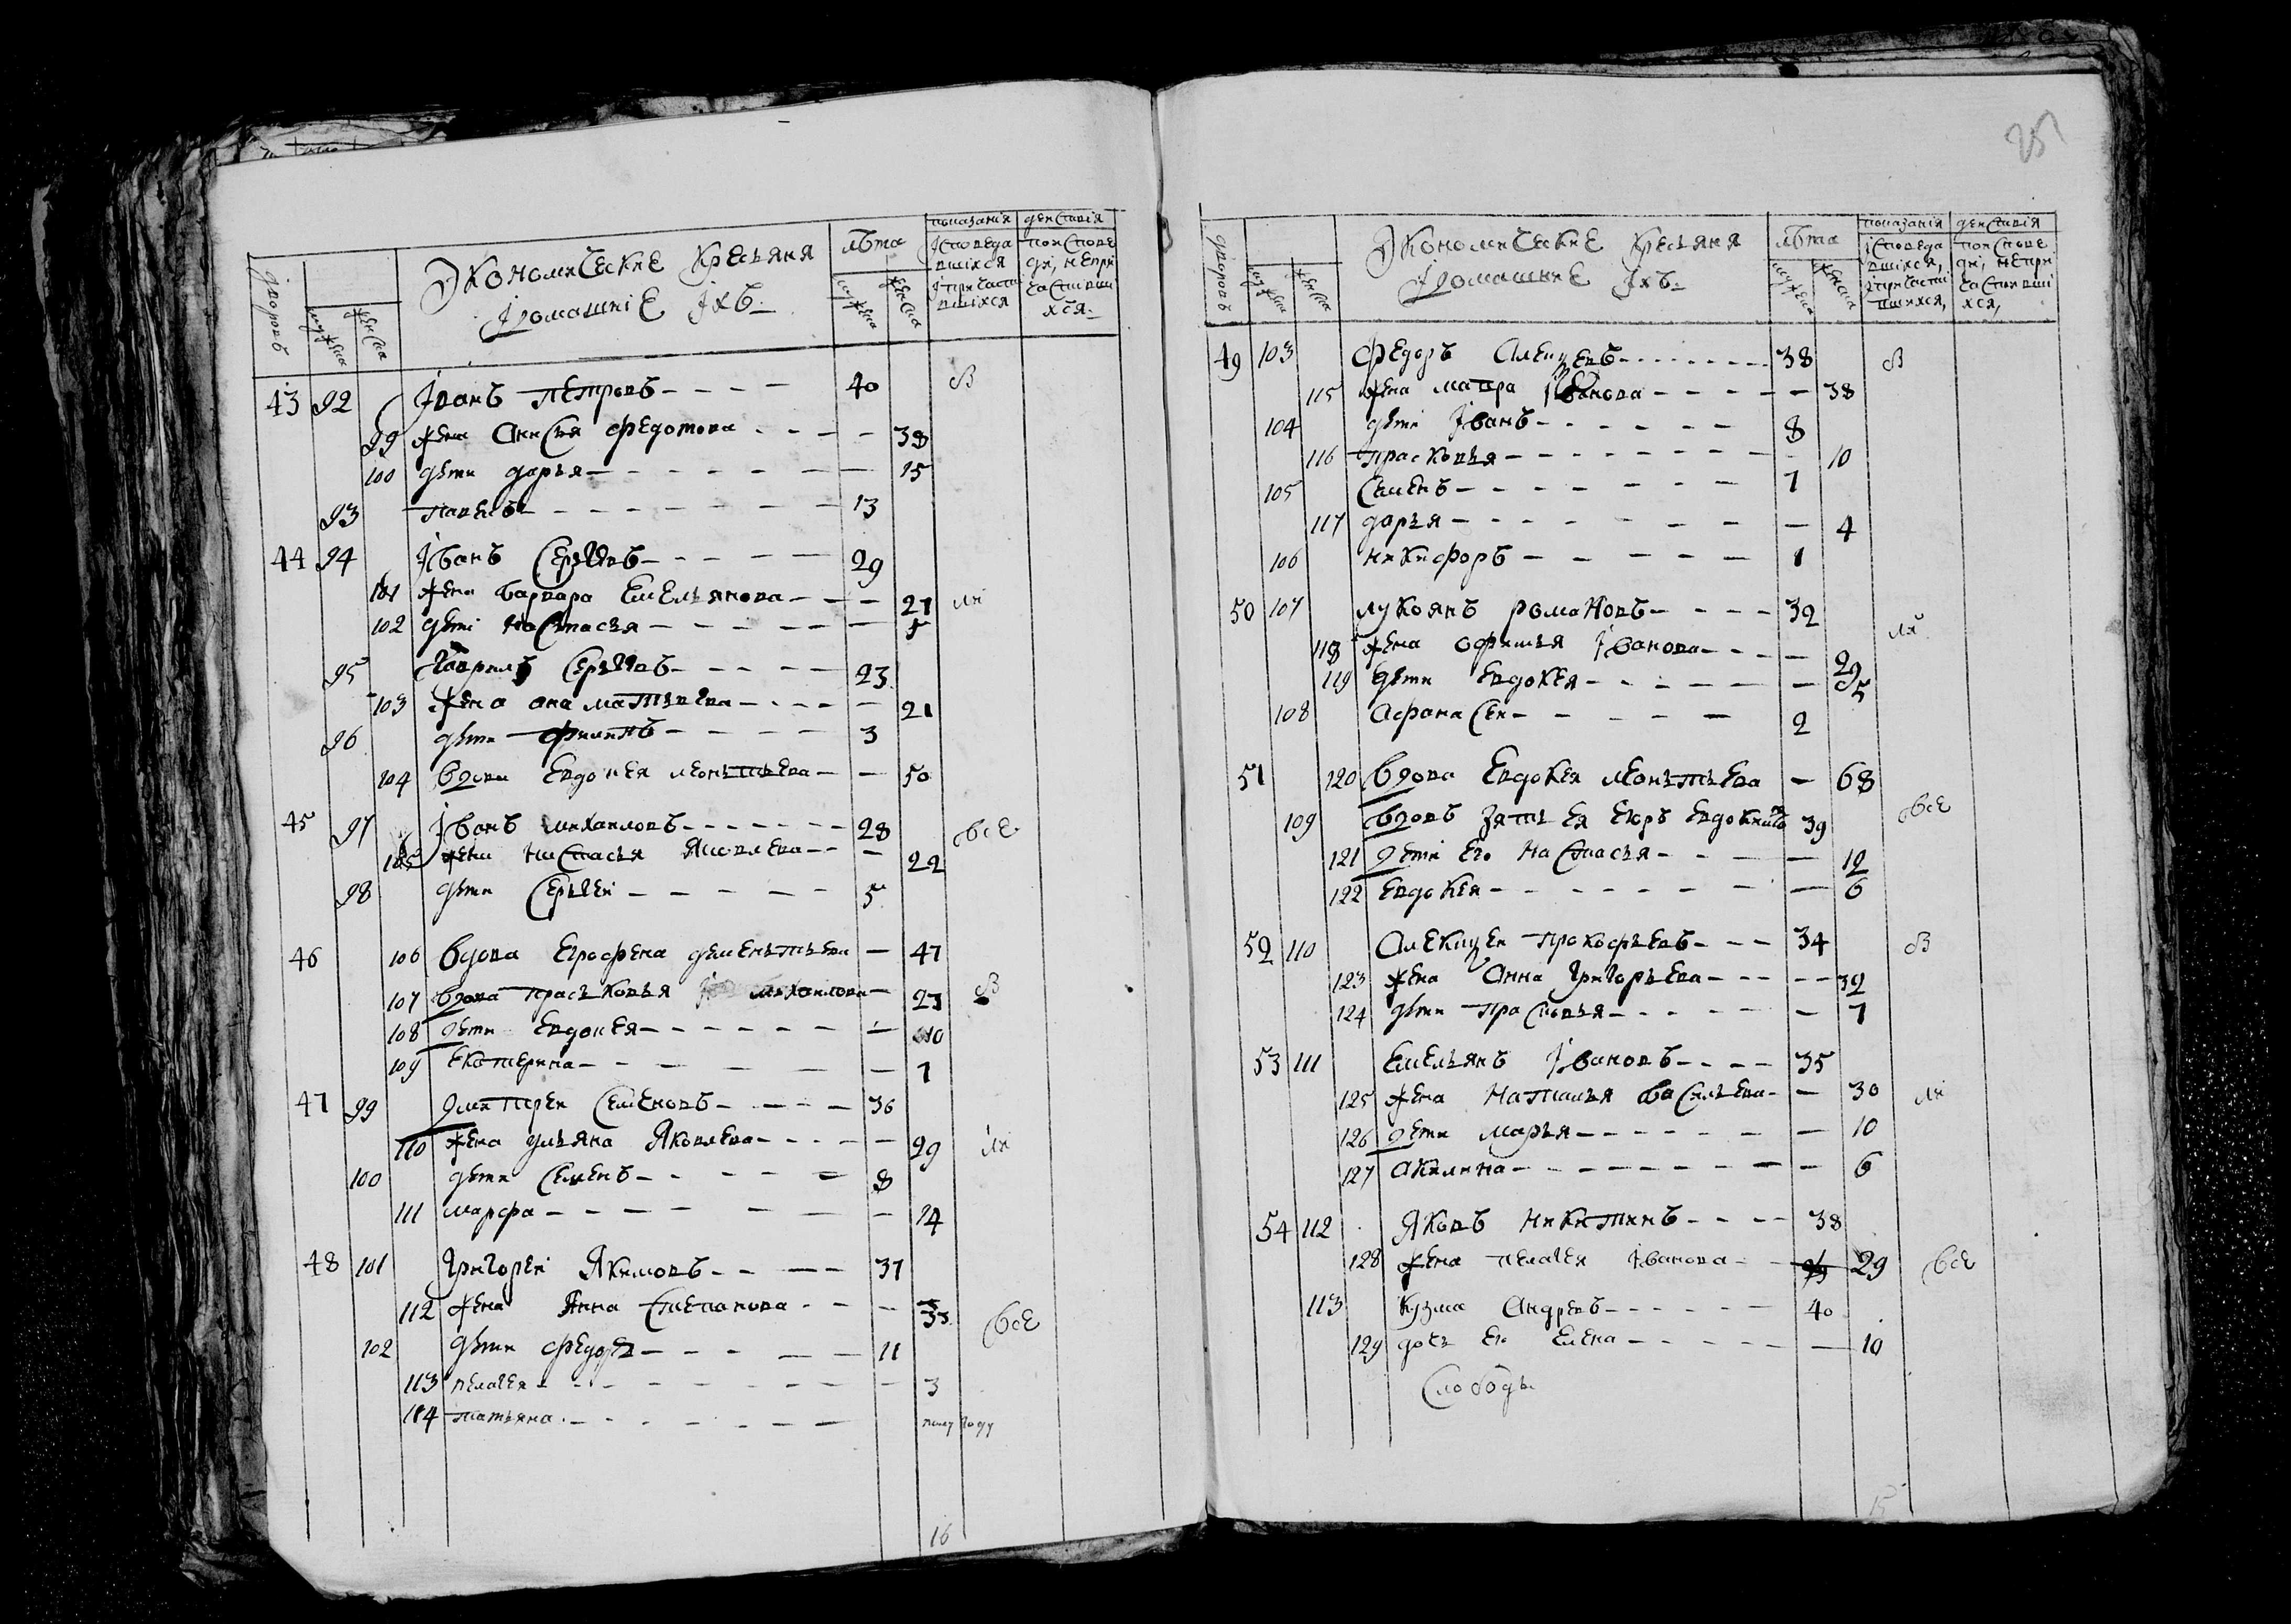 25
дворовъ
мужеска
женска
Экономические крестьяня
и домашние ихъ
лѣта
мужеска
женска
показания
действия
исповеда
вшихся
и причасти
вшихся
по испове
ди, не при
частивши
хся
43 92 Іванъ Петровъ 40 в
99 жена Анисья Федотова 38
100 дѣти Дарья 15
93 Павелъ 13
44 94 Іванъ Сергѣевъ 29
101 жена Варвара Емельянова 27 ли
102 дѣти Настасья 5
95 Гаврилъ Сергѣевъ 23
103 жена Ана Матвѣева 21
96 дѣти Филипъ 3
104 вдова Евдокея Леонтьева 50
45 97 Іванъ Михаиловъ 28 все
105 жена Настасья Яковлева 22
98 дѣти Сергеи 5
46 106 вдова Егрофена Дементьева 47
107 вдова Прасковья Михаилова 27 в
108 дѣти Евдокея 10
109 Екатерина 7
47 99 Дмитреи Семеновъ 36
110 жена Ульяна Яковлева 29 ли
100 дѣти Семенъ 8
111 Марфа 14
48 101 Григореи Якимовъ 37
112 жена Анна Степанова 35 все
102 дѣти Федоръ 11
113 Пелагея 3
114 Татьяна полу году
16
дворовъ
мужеска
женска
Экономические крестьяня
и домашние ихъ
лѣта
мужеска
женска
показания
действия
исповеда
вшихся,
и причасти
вшихся,
по испове
ди, не при
частивши
хся,
49 103 Федоръ Алексѣевъ 38 в
115 жена Мавра Іванова 38
104 дѣти Іванъ 8
116 Прасковья 10
105 Семенъ 7
117 Дарья 4
106 Никифоръ 1
50 107 Лукоянъ Романовъ 32 ли
118 жена Офимья Іванова 29
119 дѣти Евдокея 5
108 Афанасеи 2
51 120 вдова Евдокея Леонтьева 68
109 вдовъ зять ея Егоръ Евдокимовъ 39 все
121 дѣти его Настасья 12
122 Евдокея 6
52 110 Алексѣи Прокофьевъ 34 в
123 жена Анна Григорьева 32
124 дѣти Прасковья 7
53 111 Емельянъ Івановъ 35
125 жена Наталья Васильева 30 ли
126 дѣти Марья 10
127 Акилина 6
54 112 Яковъ Никитинъ 38
128 жена Пелагея Іванова 29 все
113 Кузма Андреевъ 40
129 дочь ево Елена 10
Слободы
15